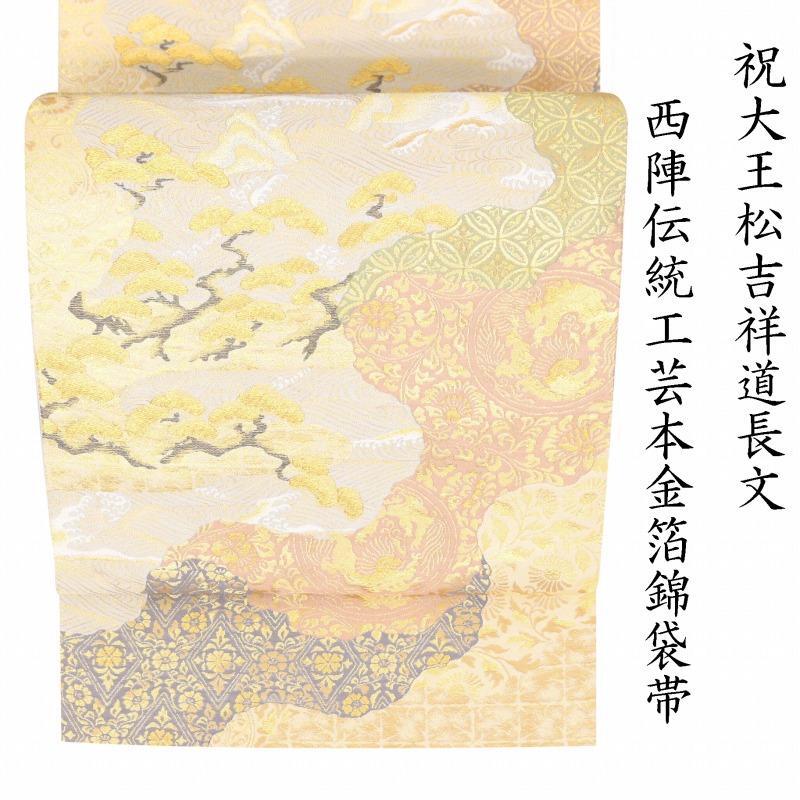 祝大王松吉祥道長文
西陣伝統工芸本金箔錦袋帯